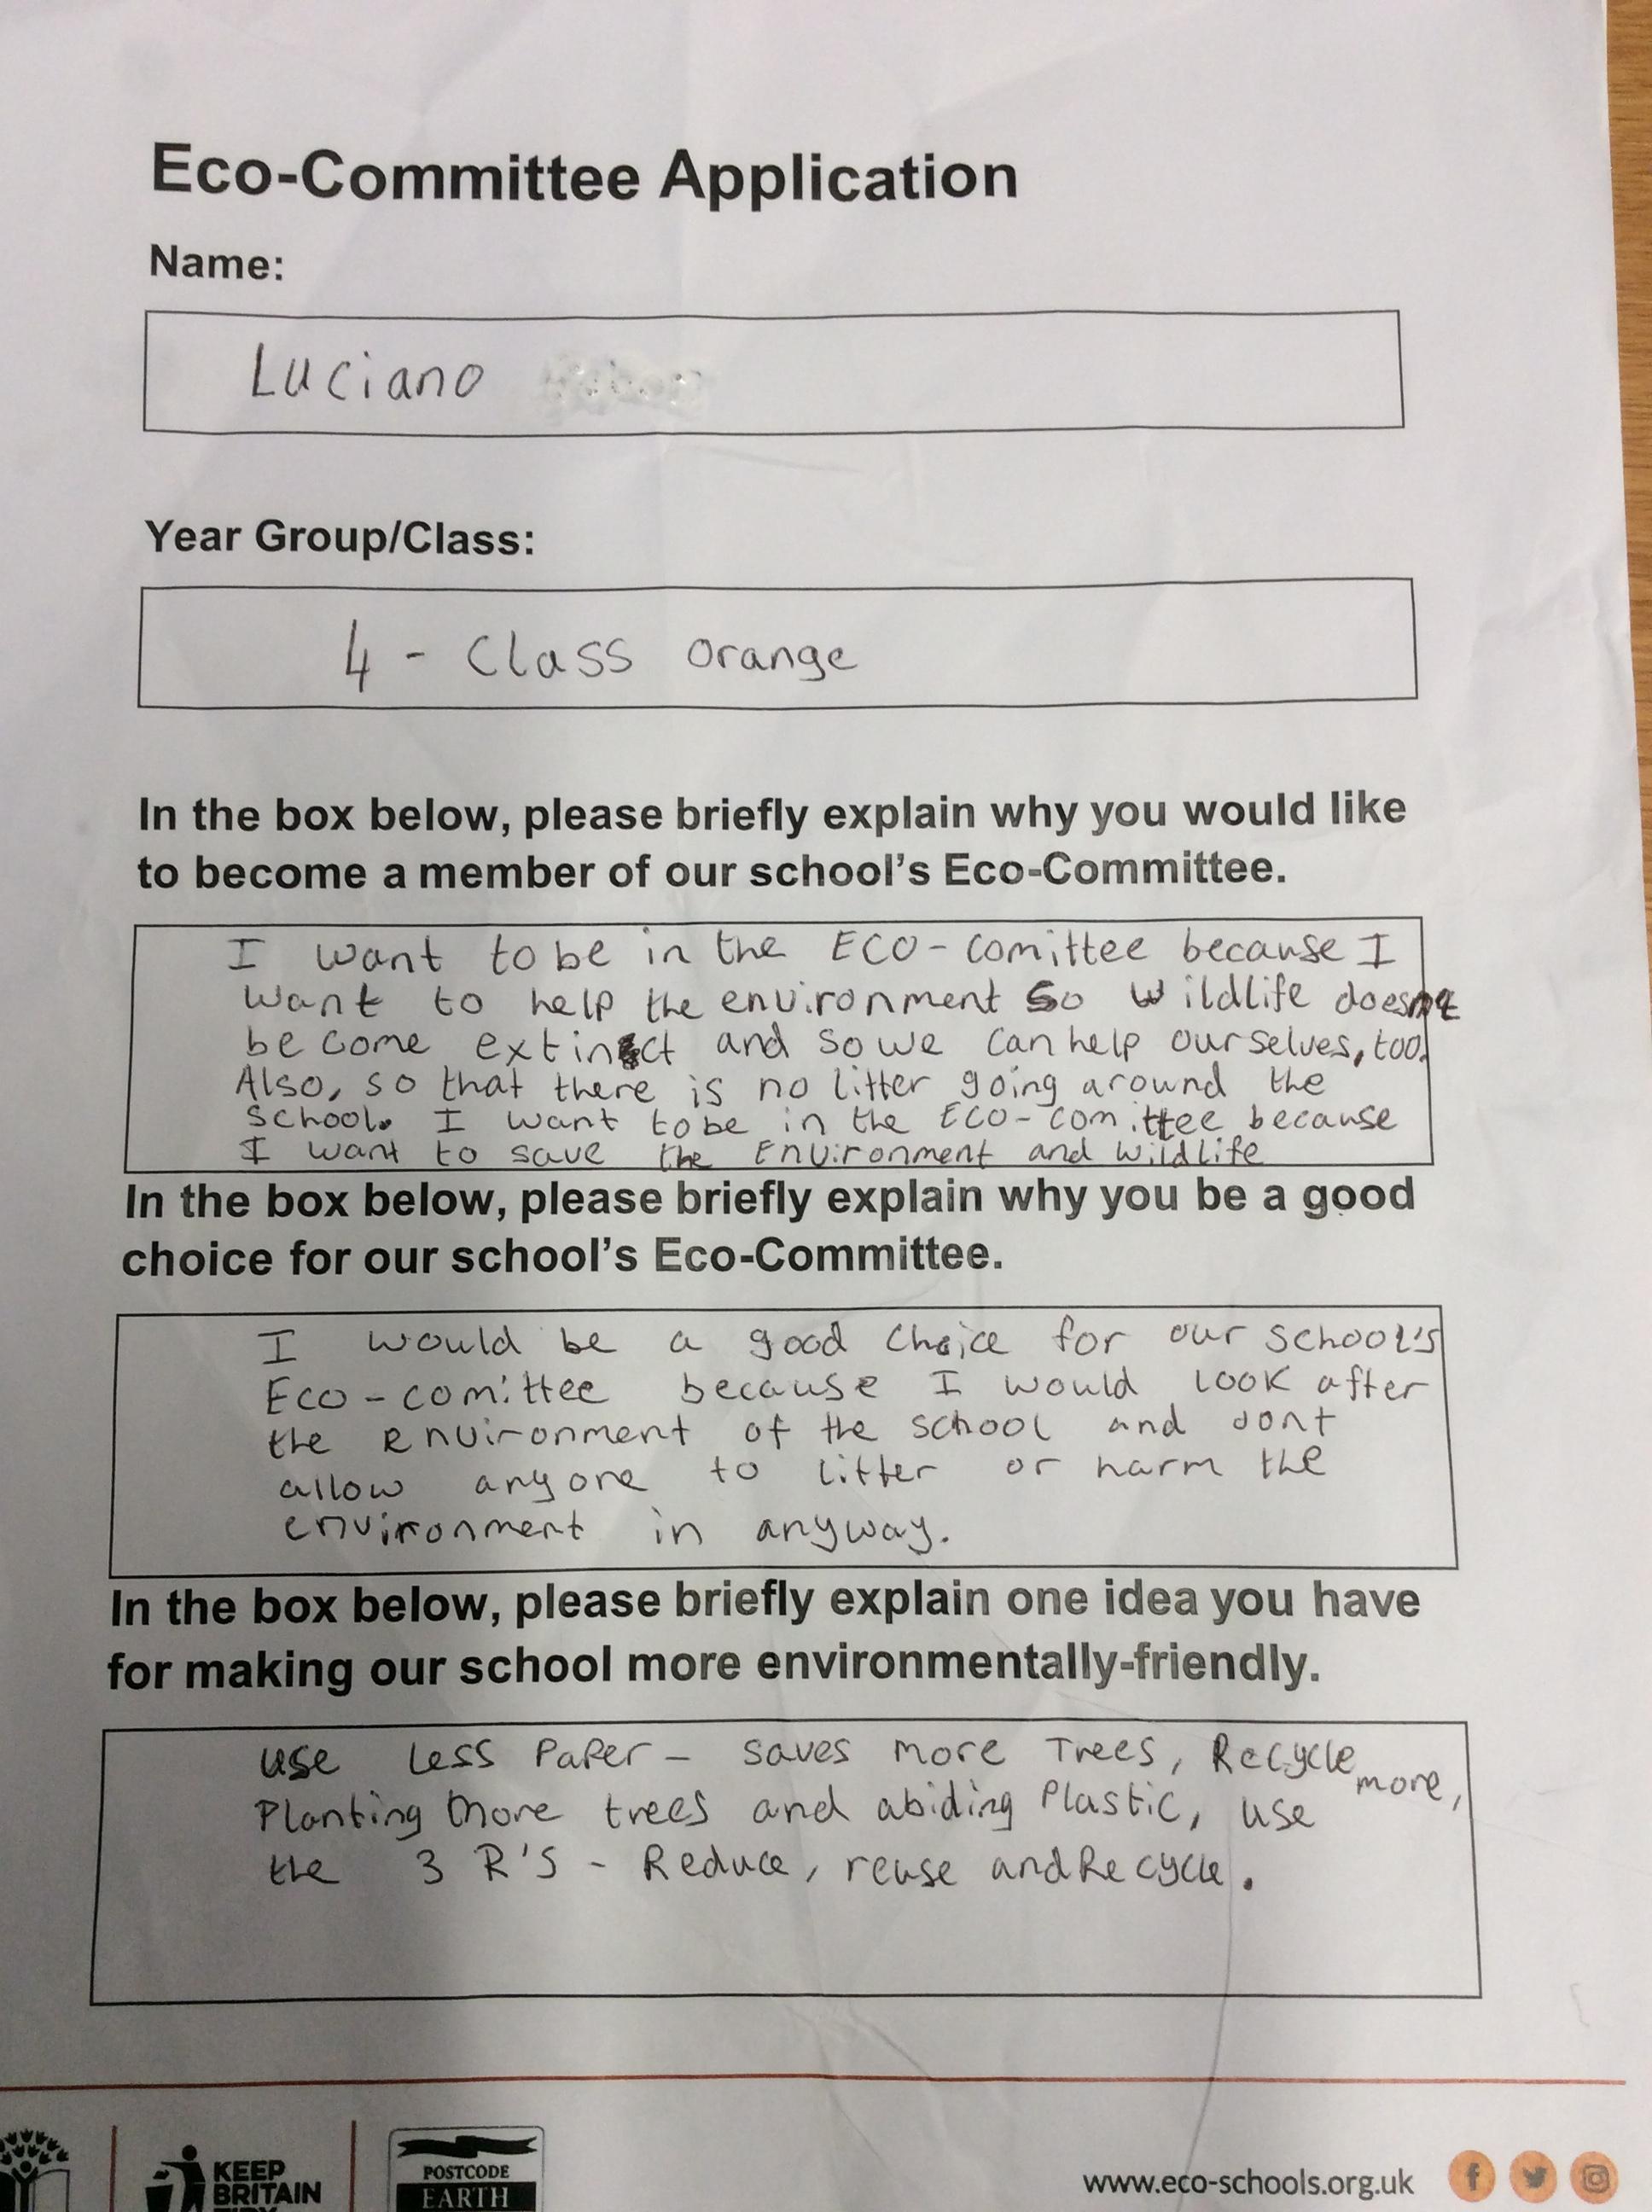 Eco-Committee Application
Name:
Luciano
Year Group/Class:
4 - Class orange
In the box below, please briefly explain why you would like
to become a member of our school's Eco-Committee.
I want to be in the ECO-comittee because I
want to help the environment So wildlife doesnt
become extinct and so we can help ourselves, too.
Also, so that there is no litter going around the
school. I want to be in the Eco-comittee because
I want to save the Environment and wildlife
In the box below, please briefly explain why you be a good
choice for our school's Eco-Committee.
I would be a good choice for our school's
Eco-comittee because I would look after
the environment of the school and dont
allow anyone to litter or harm the
environment in anyway.
In the box below, please briefly explain one idea you have
for making our school more environmentally-friendly.
use less Paper - saves more Trees, Recycle more,
Planting more trees and abiding Plastic, use
the 3 R's - Reduce, reuse and Recycle.
KEEP
BRITAIN
POSTCODE
EARTH
www.eco-schools.org.uk